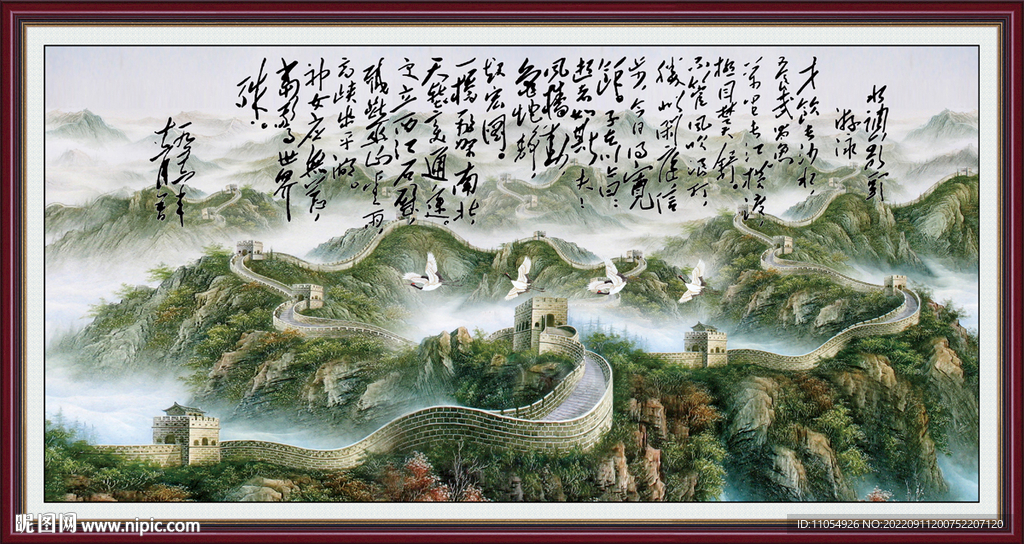 水调歌头
游泳
才饮长沙水，
又食武昌鱼。
万里长江横渡，
极目楚天舒。
不管风吹浪打，
胜似闲庭信
步，今日得宽
馀。子在川上曰：
逝者如斯夫！
风樯动，
龟蛇静，
起宏图。
一桥飞架南北，
天堑变通途。
更立西江石壁，
截断巫山云雨，
高峡出平湖。
神女应无恙，
当惊世界
殊。
一九五六年
昵图网 www.nipic.com
ID:11054926 NO:20220911200752207120